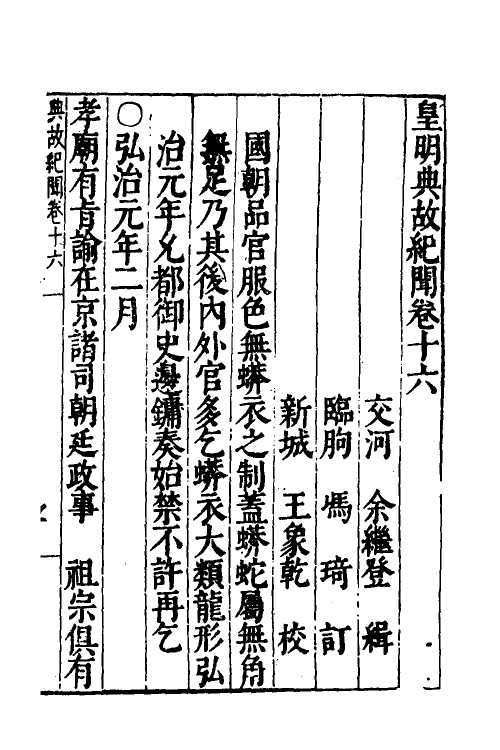 皇明典故紀聞卷十六
交河 余繼登 緝
臨朐 馮琦 訂
新城 王象乾 校
國朝品官服色無蟒衣之制蓋蟒蛇屬無角
無足乃其後內外官多乞蟒衣大類龍形弘
治元年乂都御史邊鏞奏始禁不許再乞
○弘治元年二月
孝廟有旨諭在京諸司朝廷政事 祖宗俱有
典故紀聞卷十六 一